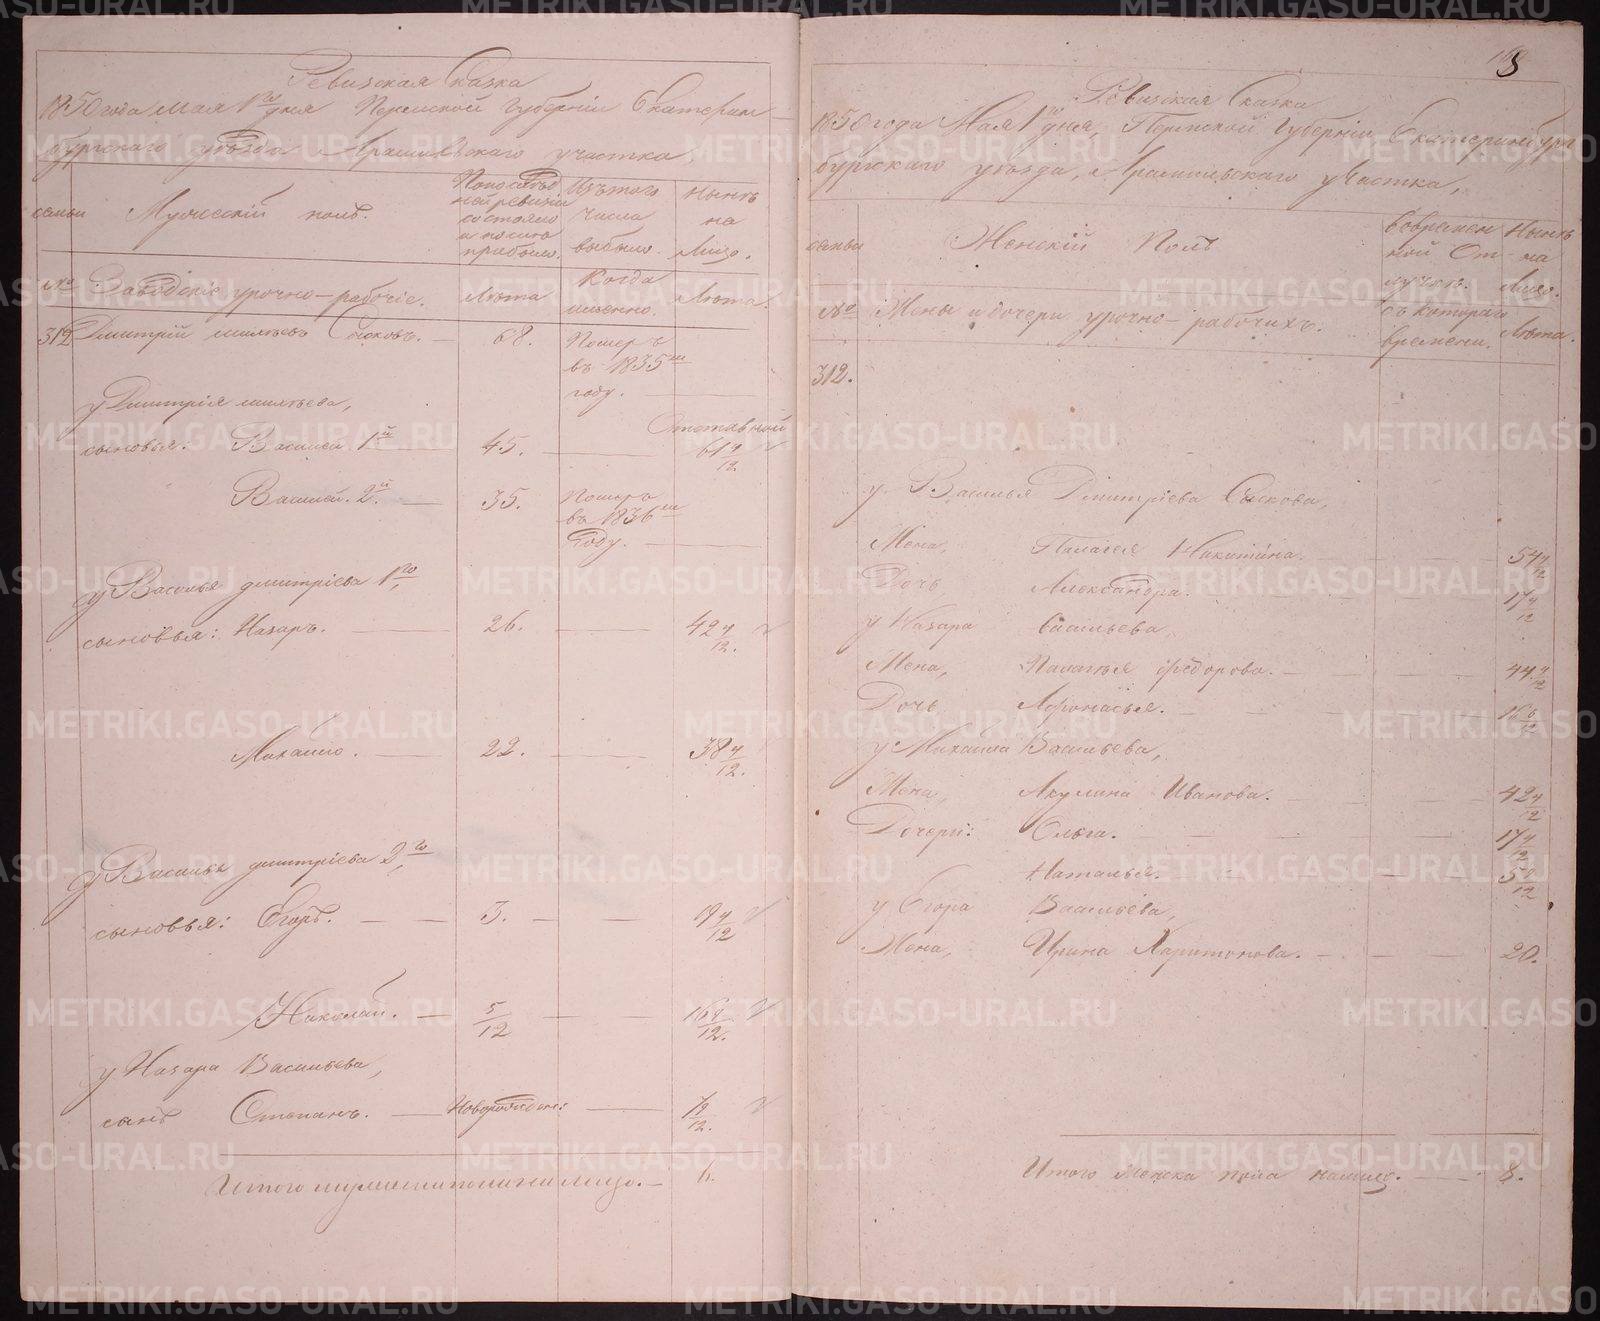 Ревизская Сказка
1850 года Мая 1го дня Пермской Губернiи Екатерин-
бургскаго уѣзда Арамильскаго участка,
семьи
Мужескiй полъ.
По послѣд
ней ревизiи
состояло
и после
прибыло.
Изъ того
числа
выбыло.
Нынѣ
на
Лицо.
№
Заводскiе урочно-рабочiе.
Лѣта
Когда
именно.
Лѣта.
312 Дмитрiй Сысковъ. 68. Померъ
въ 1835м
году.
у Дмитрiя
Отставной
сыновья: Василей 1й 45. 61 4/12
Василей. 2й 35. Померъ
въ 1836м
году.
у Василья Дмитрiева 1го,
сыновья: Назаръ. 26. 42 4/12.
Михайло. 22. 38 4/12.
у Василья Дмитрiева 2го,
сыновья: Егоръ. 3. 19 4/12
Николай. 5/12 16 8/12.
у Назара Васильева,
сынъ Степанъ. Новорожден: /12.
Итого на лицо. 6.
Ревизская Сказка
1850 года Мая 1го дня, Пермской Губернiи Екатеринбург
бургскаго уѣзда, Арамильскаго участка,
семьи
Женскiй Полъ
Во времен
ной От-
лучкѣ.
Нынѣ
на
Лицо.
№
Жены и дочери урочно-рабочихъ.
съ котораго
времени.
Лѣта.
312.
у Василья Дмитрiева Сыскова,
Жена, Палагея Никитина. 54 4/12
Дочь, Александра. 17 4/12
у Назара Васильева,
Жена, Палагья Фёдорова. 44 4/12
Дочь Афонасья. 16 6/12
у Михаила Васильева,
Жена, Акулина Иванова. 42 4/12
Дочери: Ольга. 17 4/12
Наталья. 5 /12
у Егора Васильева,
Жена, Ирина Харитонова. 20.
Итого женска пола налицо. 8.
METRIKI.GASO-URAL.RU